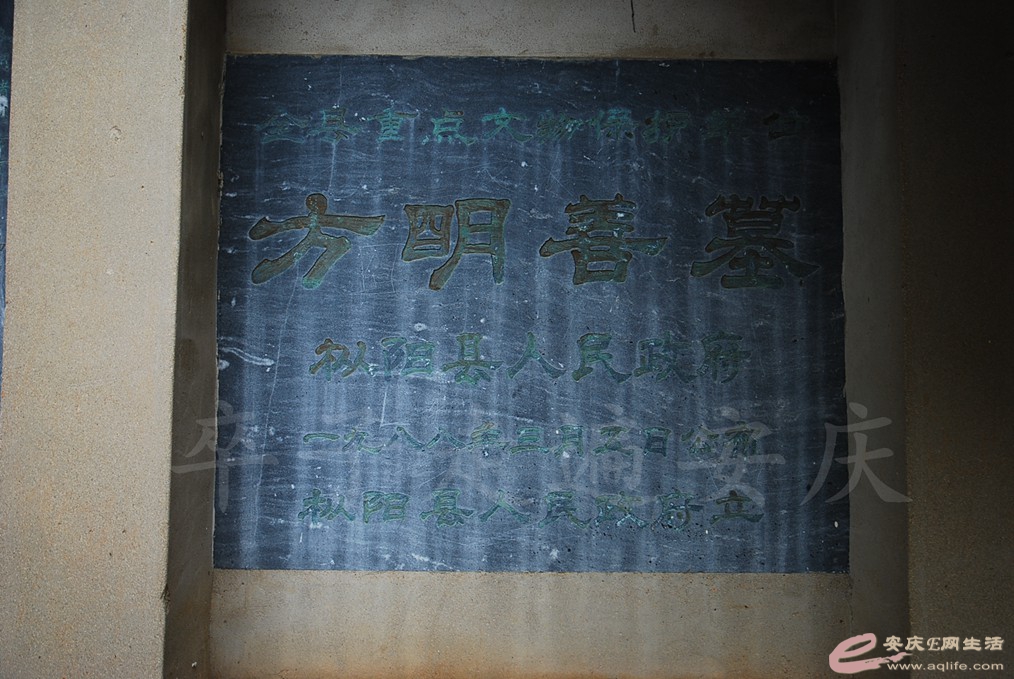 全县重点文物保护单位
方明善墓
枞阳县人民政府
一九八八年三月五日公布
枞阳县人民政府立
安庆
安庆E网生活
www.aqlife.com